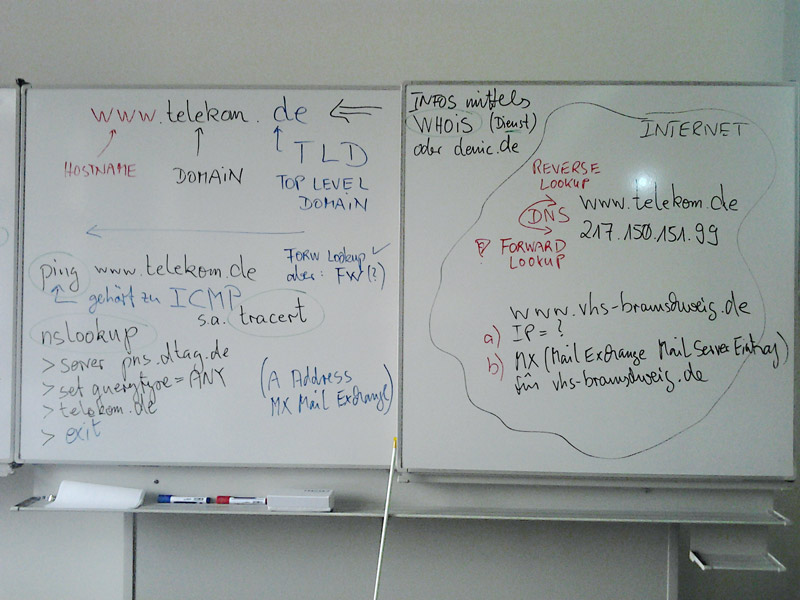 www.telekom.de
HOSTNAME
DOMAIN
TLD
TOP LEVEL
DOMAIN
ping www.telekom.de
FORW Lookup ✓
aber: FW (?)
gehört zu ICMP
s.a. tracert
nslookup
> server pns.dtag.de
> set querytype = ANY
> telekom.de
> exit
(A Address
MX Mail Exchange)
INFOS mittels
WHOIS (Dienst)
oder denic.de
INTERNET
REVERSE
LOOKUP
DNS
FORWARD
LOOKUP
www.telekom.de
217.150.151.99
www.vhs-braunschweig.de
a) IP = ?
b) MX (Mail Exchange Mail Server Eintrag)
für vhs-braunschweig.de